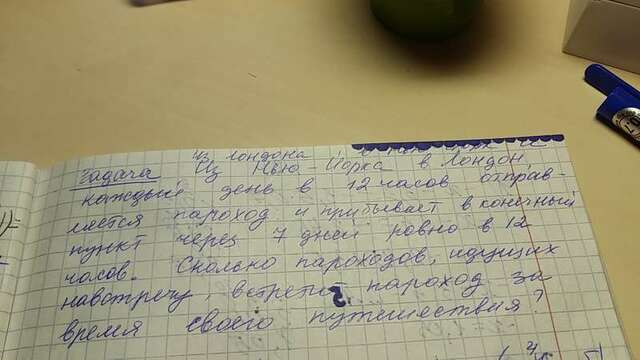 Из Лондона
Задача Из Нью-Йорка в Лондон
каждый день в 12 часов отправ-
ляется пароход и прибывает в конечный
пункт через 7 дней ровно в 12
часов. Сколько пароходов, идущих
навстречу, встретит пароход за
время своего путешествия?